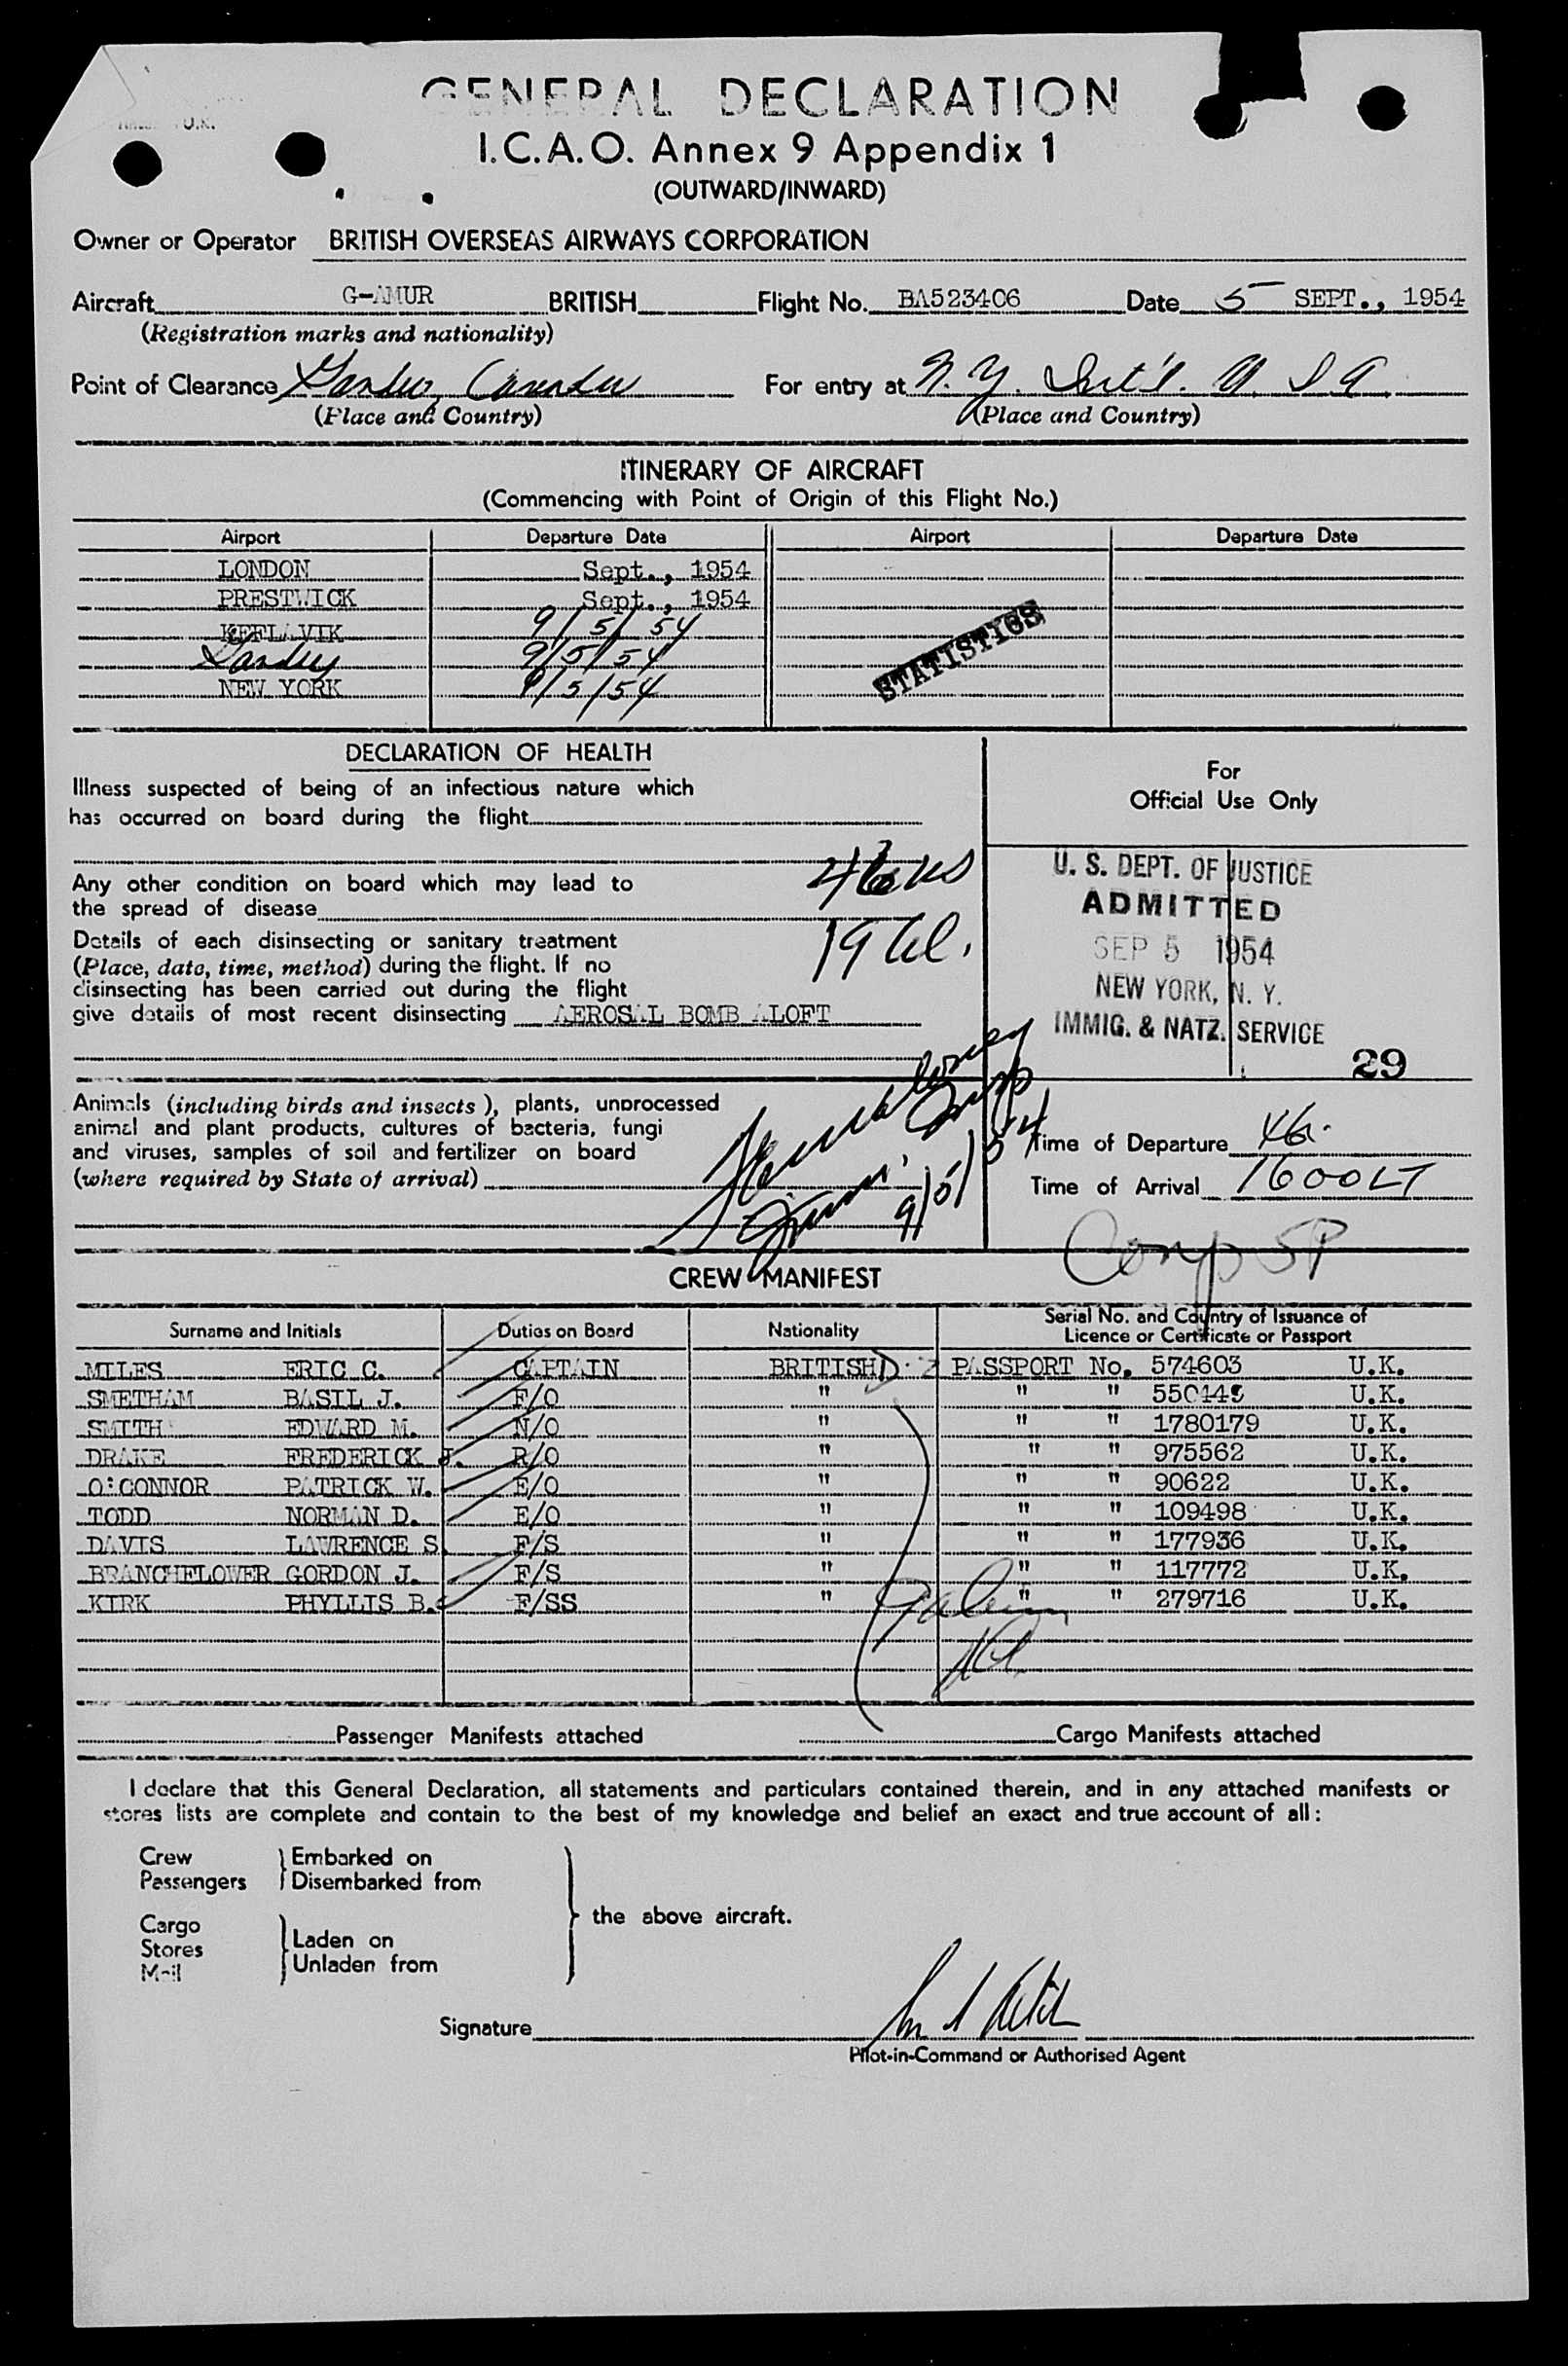 GENERAL DECLARATION
U.K.
I.C.A.O. Annex 9 Appendix 1
(OUTWARD/INWARD)
Owner or Operator BRITISH OVERSEAS AIRWAYS CORPORATION
Aircraft G-AMUR BRITISH Flight No. BA523406 Date 5 SEPT., 1954
(Registration marks and nationality)
Point of Clearance Gander, Canada For entry at N.Y. Int'l. U S A
(Place and Country) (Place and Country)
ITINERARY OF AIRCRAFT
(Commencing with Point of Origin of this Flight No.)
Airport Departure Date Airport Departure Date
LONDON Sept., 1954
PRESTWICK Sept., 1954
KEFLAVIK 9/5/54
Gander 9/5/54
NEW YORK 9/5/54
STATISTICS
DECLARATION OF HEALTH
Illness suspected of being of an infectious nature which
has occurred on board during the flight
Any other condition on board which may lead to
the spread of disease
Details of each disinsecting or sanitary treatment
(Place, date, time, method) during the flight. If no
disinsecting has been carried out during the flight
give details of most recent disinsecting AEROSAL BOMB ALOFT
19 al.
Animals (including birds and insects), plants, unprocessed
animal and plant products, cultures of bacteria, fungi
and viruses, samples of soil and fertilizer on board
(where required by State of arrival)
9/5/54
For
Official Use Only
U. S. DEPT. OF JUSTICE
ADMITTED
SEP 5 1954
NEW YORK, N. Y.
IMMIG. & NATZ. SERVICE
29
Time of Departure
Time of Arrival 1600 LT
Comp SP
CREW MANIFEST
Surname and Initials Duties on Board Nationality Serial No. and Country of Issuance of
Licence or Certificate or Passport
MILES ERIC C. CAPTAIN BRITISH PASSPORT No. 574603 U.K.
SMETHAM BASIL J. F/O " " " 550445 U.K.
SMITH EDWARD M. N/O " " " 1780179 U.K.
DRAKE FREDERICK J. R/O " " " 975562 U.K.
O'CONNOR PATRICK W. E/O " " " 90622 U.K.
TODD NORMAN D. E/O " " " 109498 U.K.
DAVIS LAWRENCE S. F/S " " " 177936 U.K.
BRANCHFLOWER GORDON J. F/S " " " 117772 U.K.
KIRK PHYLLIS B. F/SS " " " 279716 U.K.
Passenger Manifests attached Cargo Manifests attached
I declare that this General Declaration, all statements and particulars contained therein, and in any attached manifests or
stores lists are complete and contain to the best of my knowledge and belief an exact and true account of all:
Crew
Passengers
Embarked on
Disembarked from
Cargo
Stores
Mail
Laden on
Unladen from
the above aircraft.
Signature
Pilot-in-Command or Authorised Agent